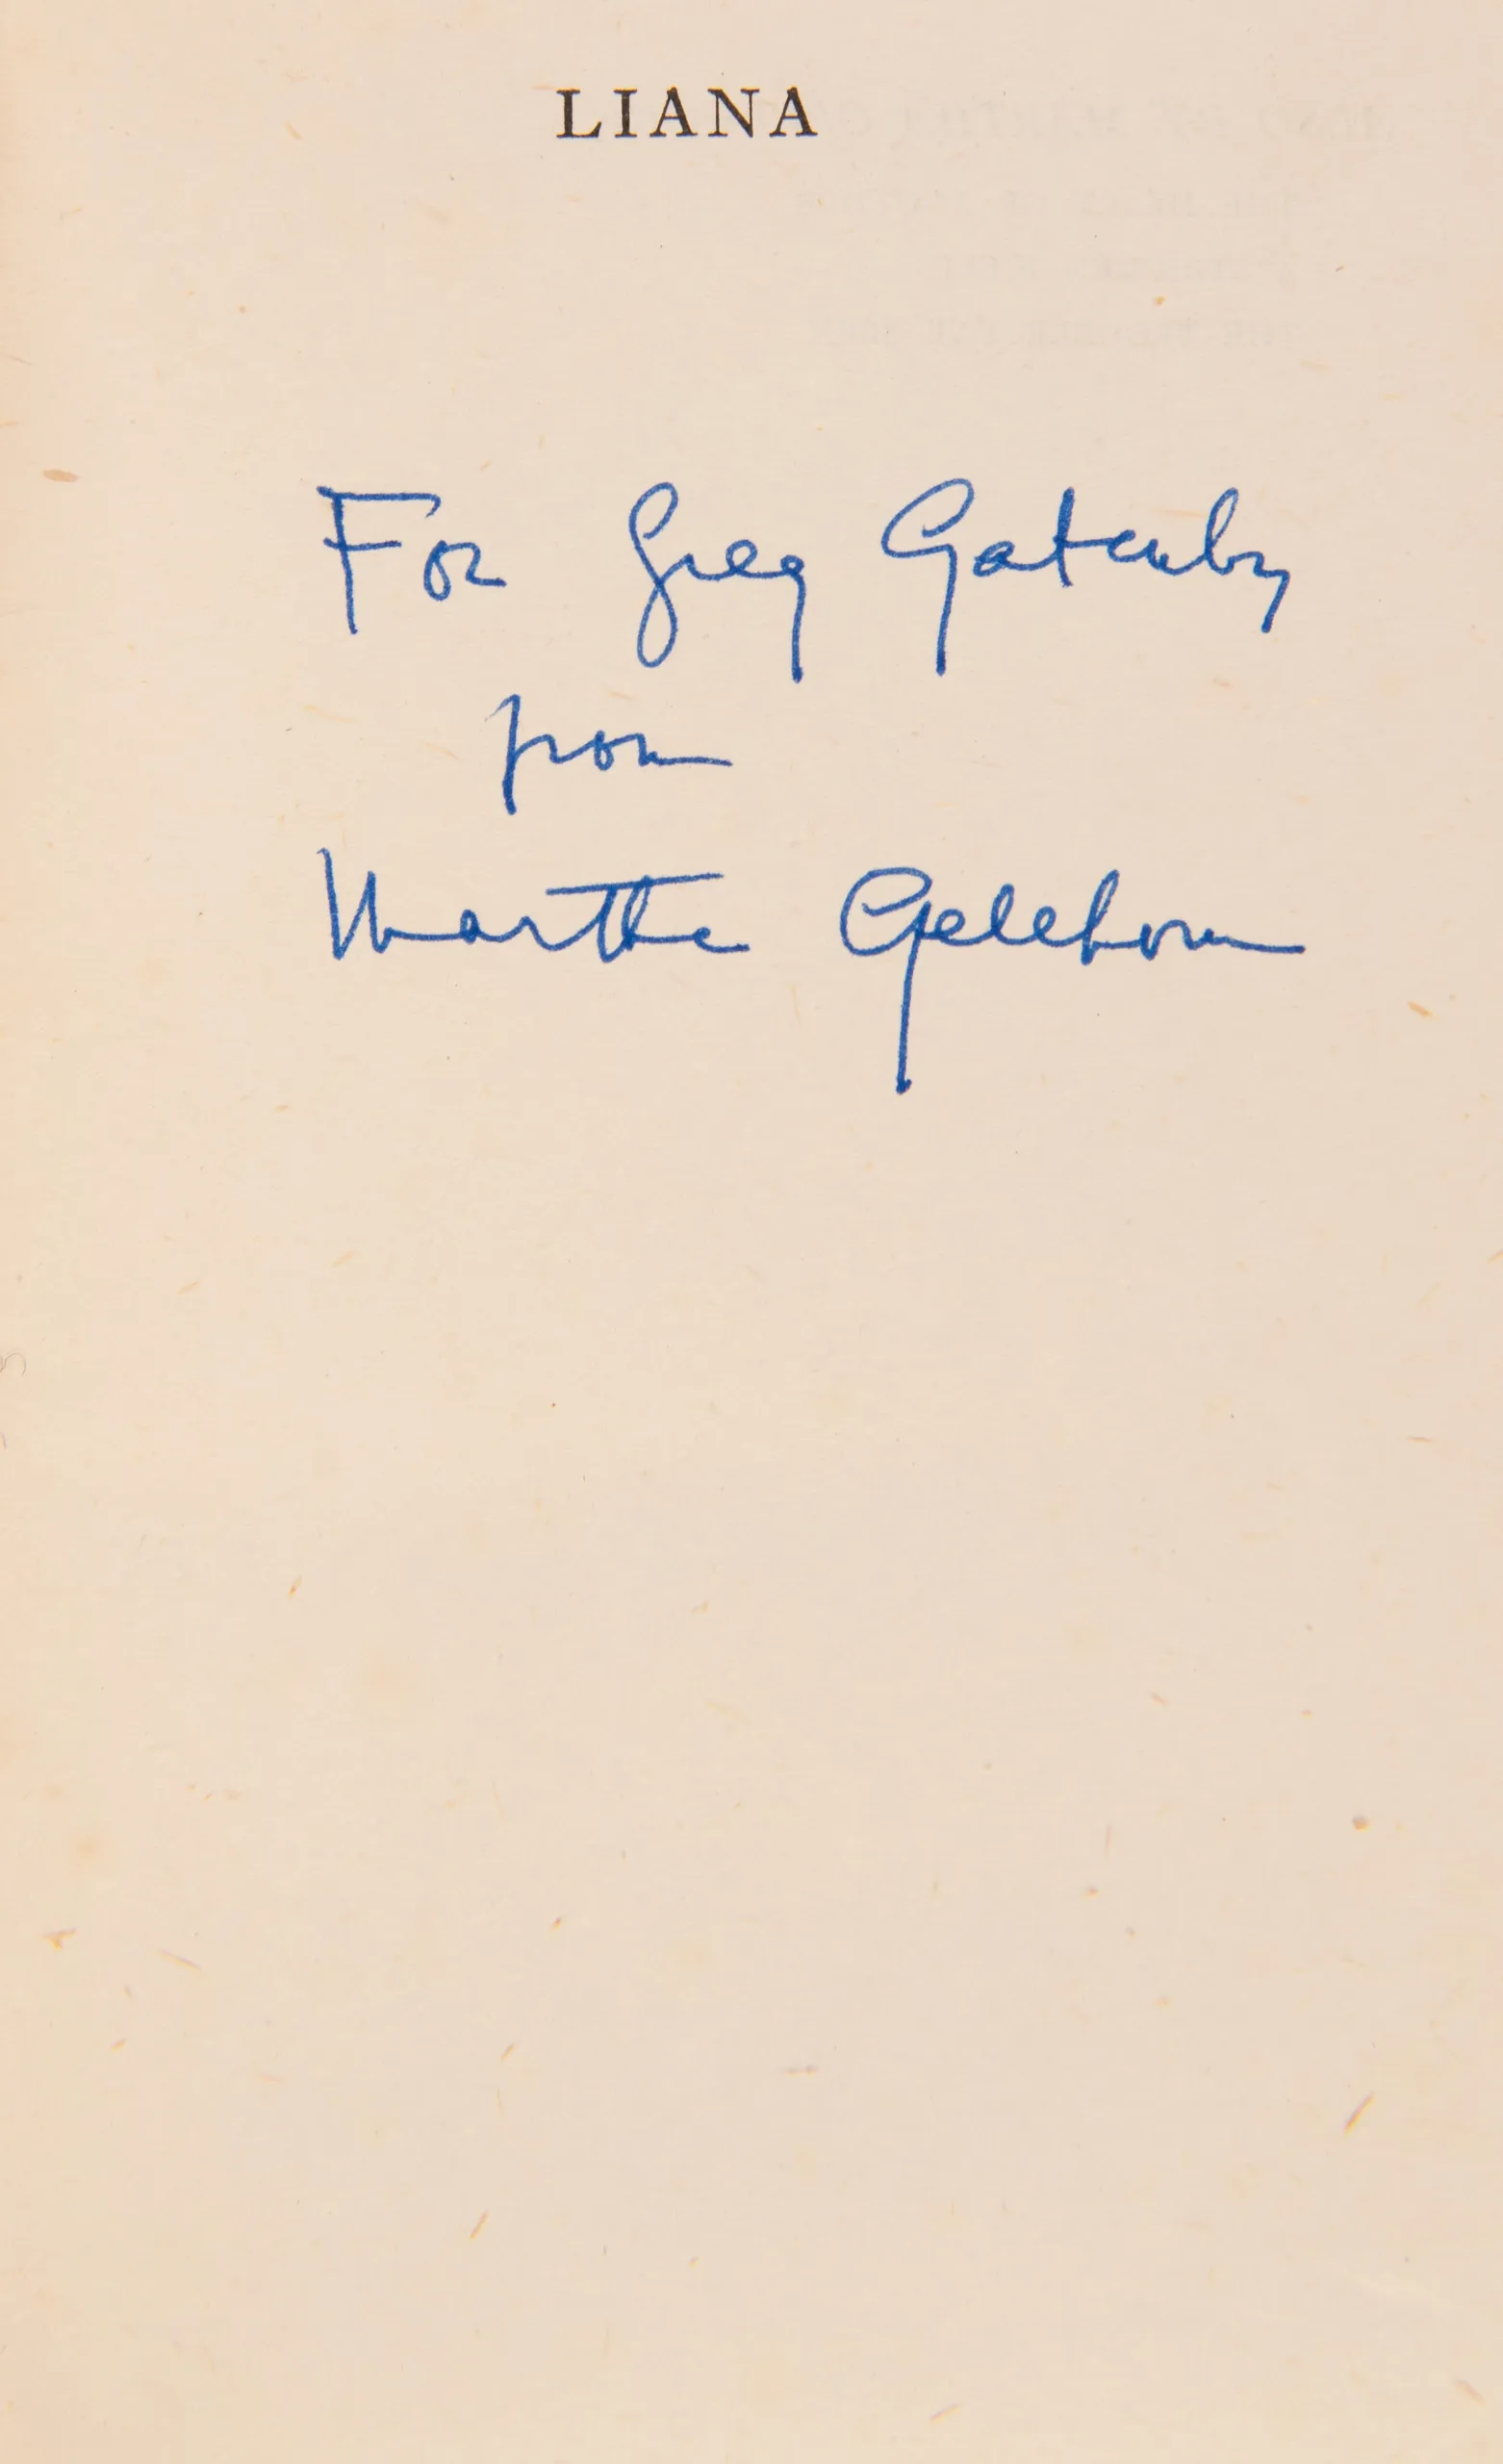 LIANA
For Greg Gatenby
from
Martha Gellhorn